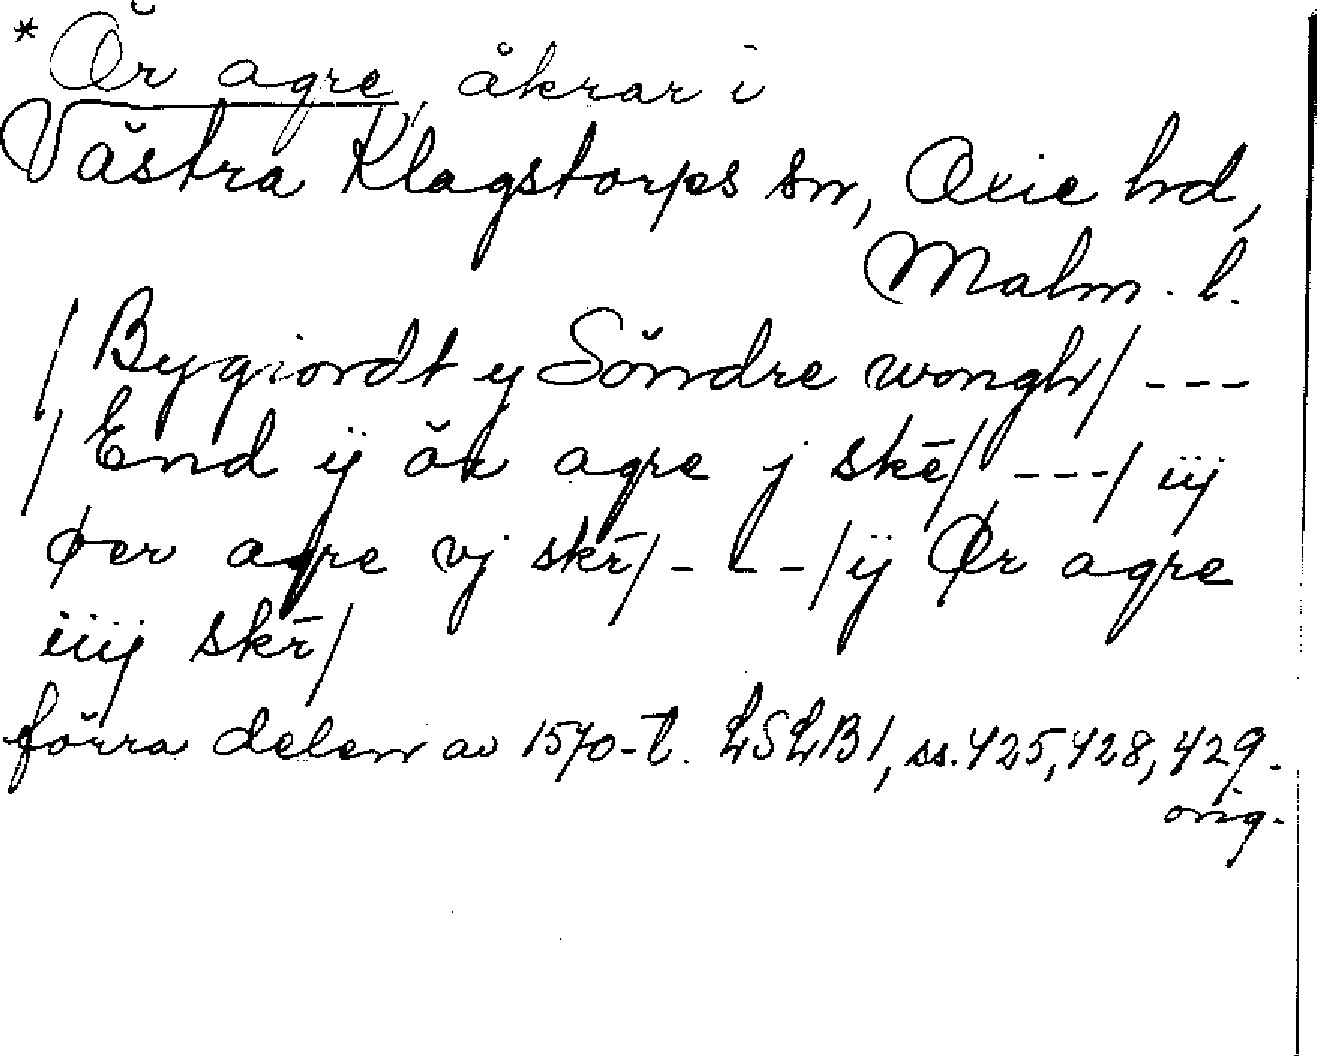 *Ör agre, åkrar i
Västra Klagstorps sn, Oxie hd,
Malm. l.
/Bygiordt y Söndre wongh/ ---
/End ij ör agre j skē/ ---/ iij
øer agre vj skr̄/ ---/ij Ør agre
iiij skr̄/
förra delen av 1570-t. LSLB1, ss. 425, 428, 429.
orig.